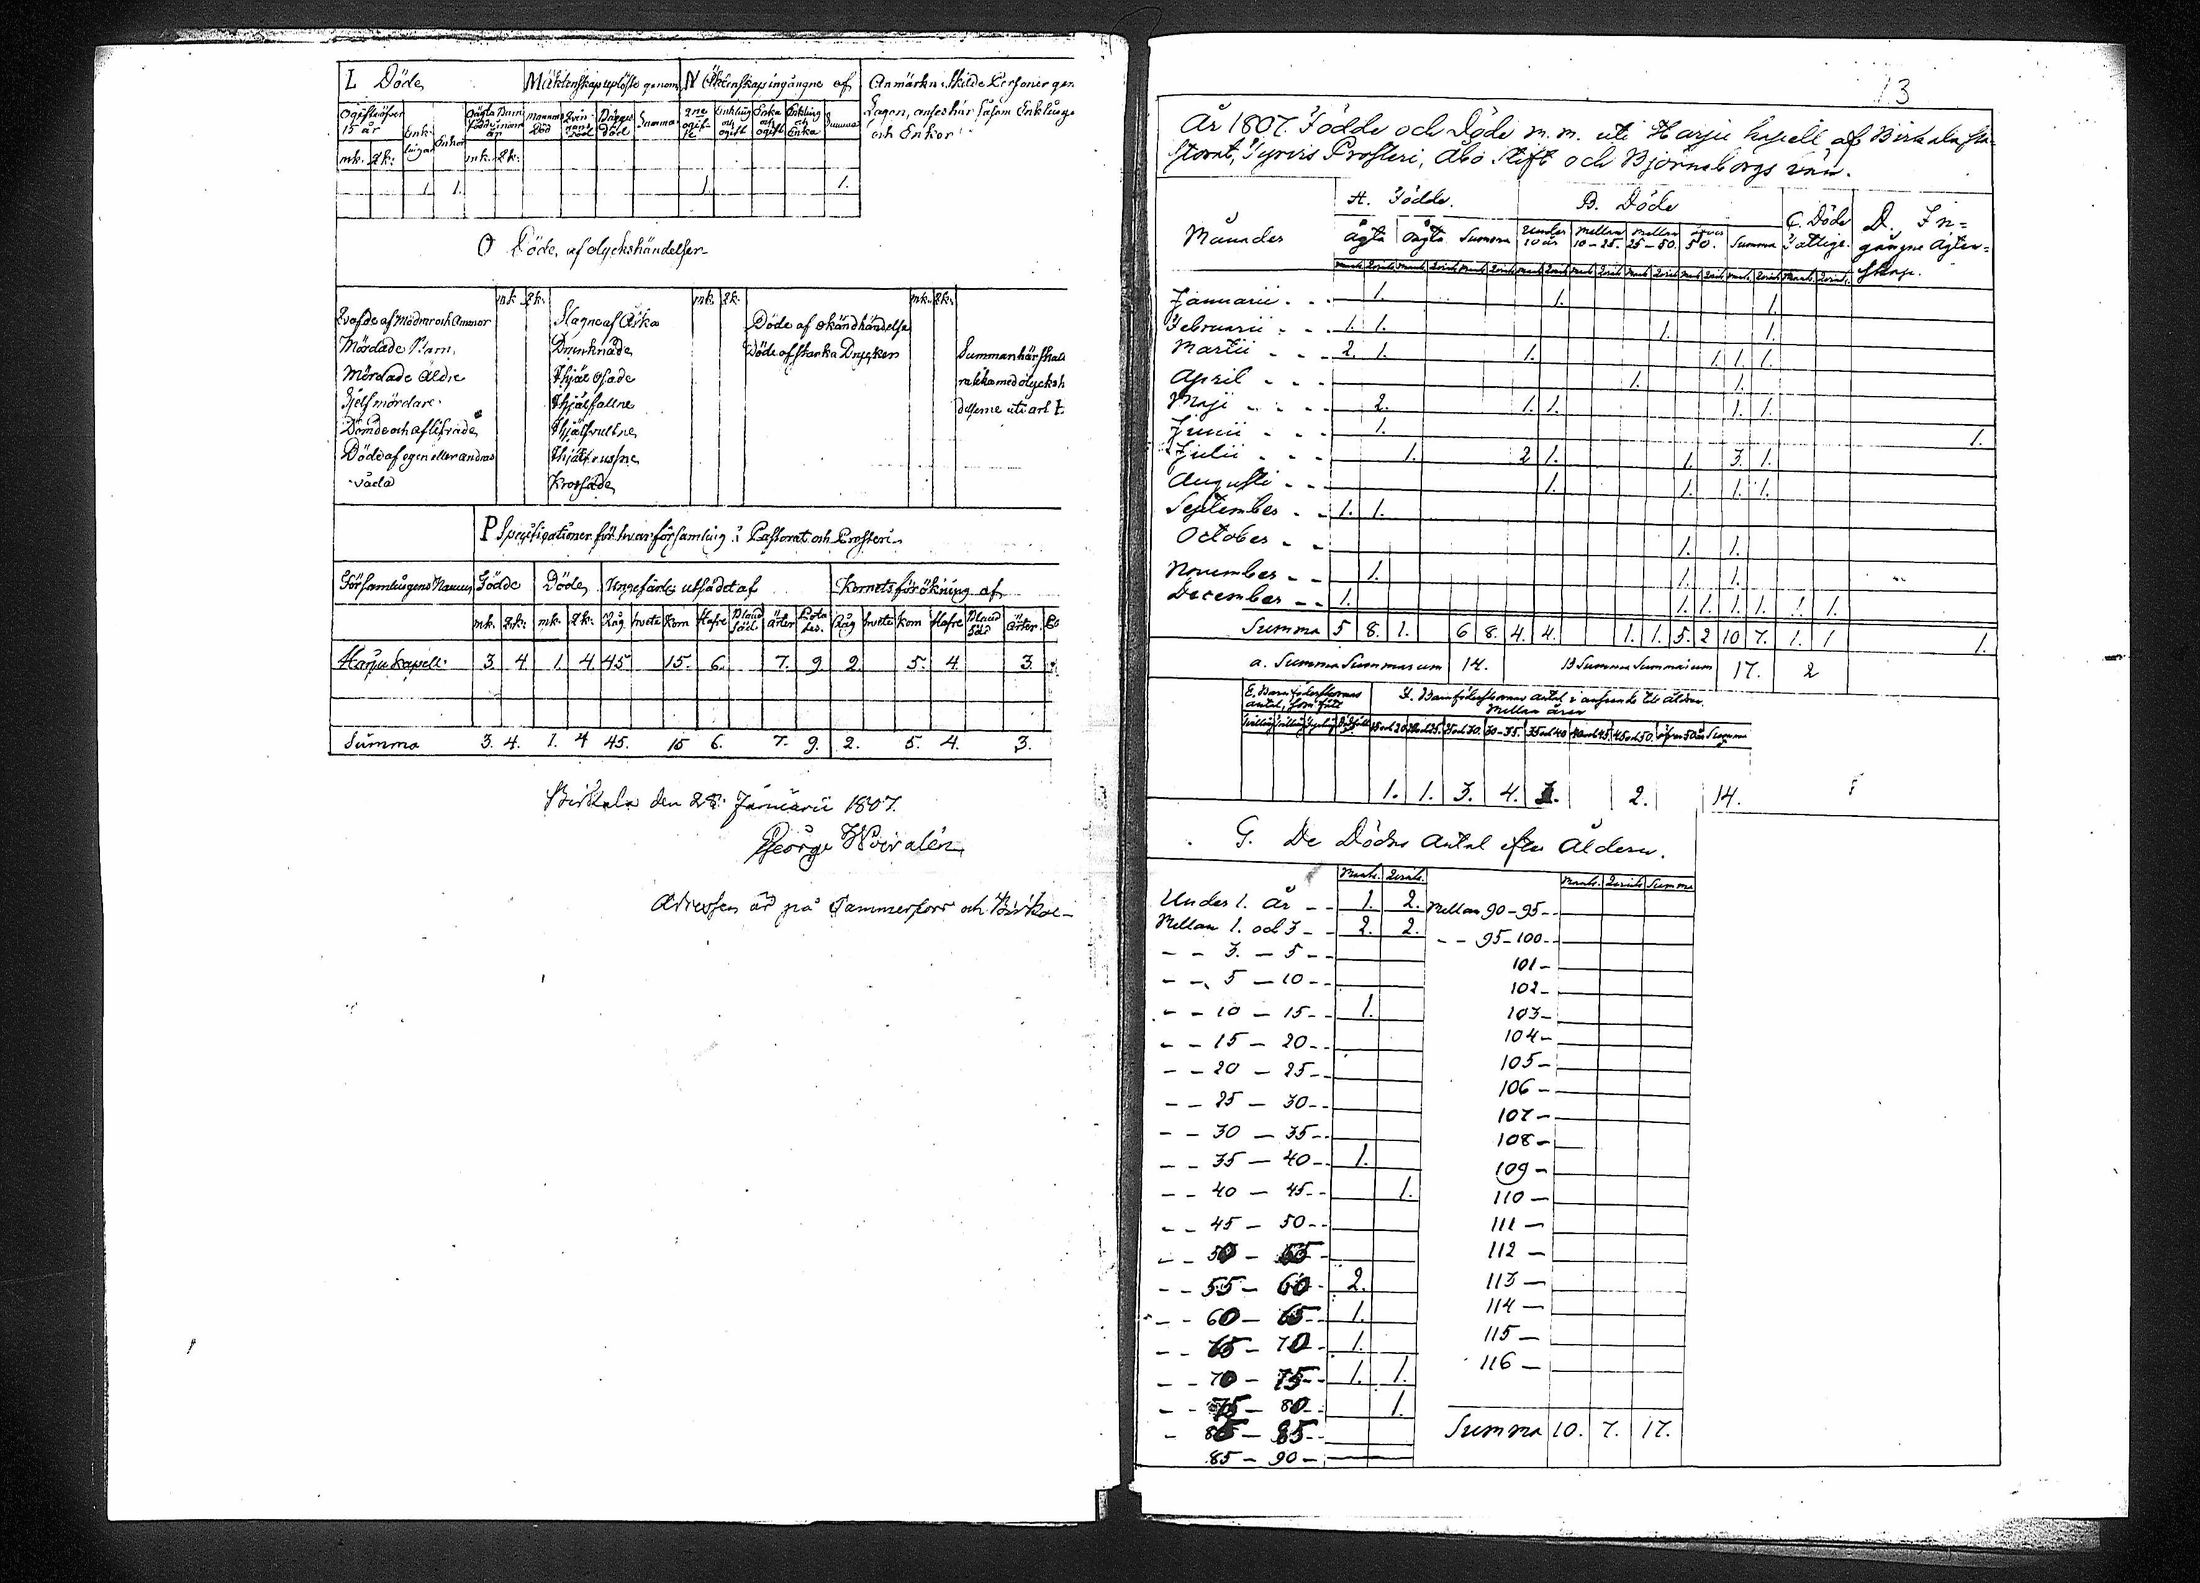 L Döde
Mäktenskap uplöste genom
N Äktenskap ingångne af
Anmärkn: Skilde Personer gen
Ogifte öfver 15 år
Enklingar
Enkor
Oägta Barn
Mannens Död
Summa
Enkling och ogift
Enka och ogift
Enkling och Enka
Summa
Lagen, anses här såsom Enklinga
och Enkor
mk. qk: mk. qk:
1. 1. 1. 1.
O Döde, af olyckshändelser
mk. qk. mk. qk. mk. qk.
Qvafde af Mödrar och Ammor
Slagne af Åska
Döde af okänd händelse
Mördade Barn
Drunknade
Döde af starka Drycker
Summan här skall
Mördade Äldre
Ihjäl osade
Sjelfmördare
Ihjälfallne
Dömde och aflifvade
Ihjälfrusne
Döde af egen eller andras
våda
Krossade
P Specificationer för hvar församling i Pastorat och Prosteri
Församlingens Namn Födde Döde Ungefärlig utsädet af Kornets förökning af
mk. qk: mk. qk: Råg hvete Korn Hafre Bland säd Ärter Råg hvete Korn Hafre Bland säd Ärter
Harju kapell. 3. 4 1. 4. 45. 15. 6. 7. 9. 2. 5. 4. 3.
Summa 3. 4. 1. 4 45. 15 6. 7. 9. 2. 5. 4. 3.
Birkala den 28. Januarii 1807.
George Woivalén
Adressen är på Tammerfors och Birkala
13
År 1807. Födde och Döde m. m. uti Harju kapell af Birkala Pa-
storat, Tyrvis Prosteri, Åbo Stift och Björneborgs län.
Månader
A. Födde.
B. Döde
C. Döde Fattige.
D. In-
gångne Ägten-
skap.
Ägta Oägta Summa Under 10 år Mellan 10-25. Mellan 25-50. öfver 50. Summa
Januarii - - 1. 1. 1.
Februarii - - 1. 1. 1. 1.
Martii - - 2. 1. 1. 1. 1. 1.
April - - 1. 1.
Maji - - 2. 1. 1. 1. 1.
Junii - - 1. 1.
Julii - - 1. 2 1. 1. 3. 1.
Augusti - - 1. 1. 1. 1.
September - - 1. 1.
October - - 1. 1.
November - - 1. 1. 1.
December - - 1. 1. 1. 1. 1. 1. 1.
Summa 5 8. 1. 6 8. 4. 4. 1. 1. 5. 2 10 7. 1. 1 1.
a. Summa Summarum 14. B Summa Summarum 17. 2
E. Barnföderskornas antal, som födt
F. Barnföderskornas antal i anseende till åldren.
Mellan åren
15 och 20 20 och 25. 25 och 30. 30-35. 35 och 40 40 och 45. 45 och 50. öfver 50 år Summa
1. 1. 3. 4. 3. 2. 14.
G. De Dödas Antal efter Åldern.
Mank. Qvink. Mank. Qvink. Summa
Under 1. år - - 1. 2. Mellan 90-95 - -
Mellan 1. och 3 - - 2. 2. - - 95-100 - -
- - 3. - 5 - - 101 -
- - 5 - 10 - - 102 -
- - 10 - 15 - - 1. 103 -
- - 15 - 20 - - 104 -
- - 20 - 25 - - 105 -
- - 25 - 30 - - 106 -
- - 30 - 35 - - 107 -
- - 35 - 40 - - 1. 108 -
- - 40 - 45 - - 1. 109 -
- - 45 - 50 - - 110 -
- - 50 - 55 - 111 -
- - 55 - 60 - 2. 112 -
- - 60 - 65 - 1. 113 -
- - 65 - 70 - 1. 114 -
- - 70 - 75 - - 1. 1. 115 -
- - 75 - 80 - - 1. 116 -
- 80 - 85 - - Summa 10. 7. 17.
85 - 90 -